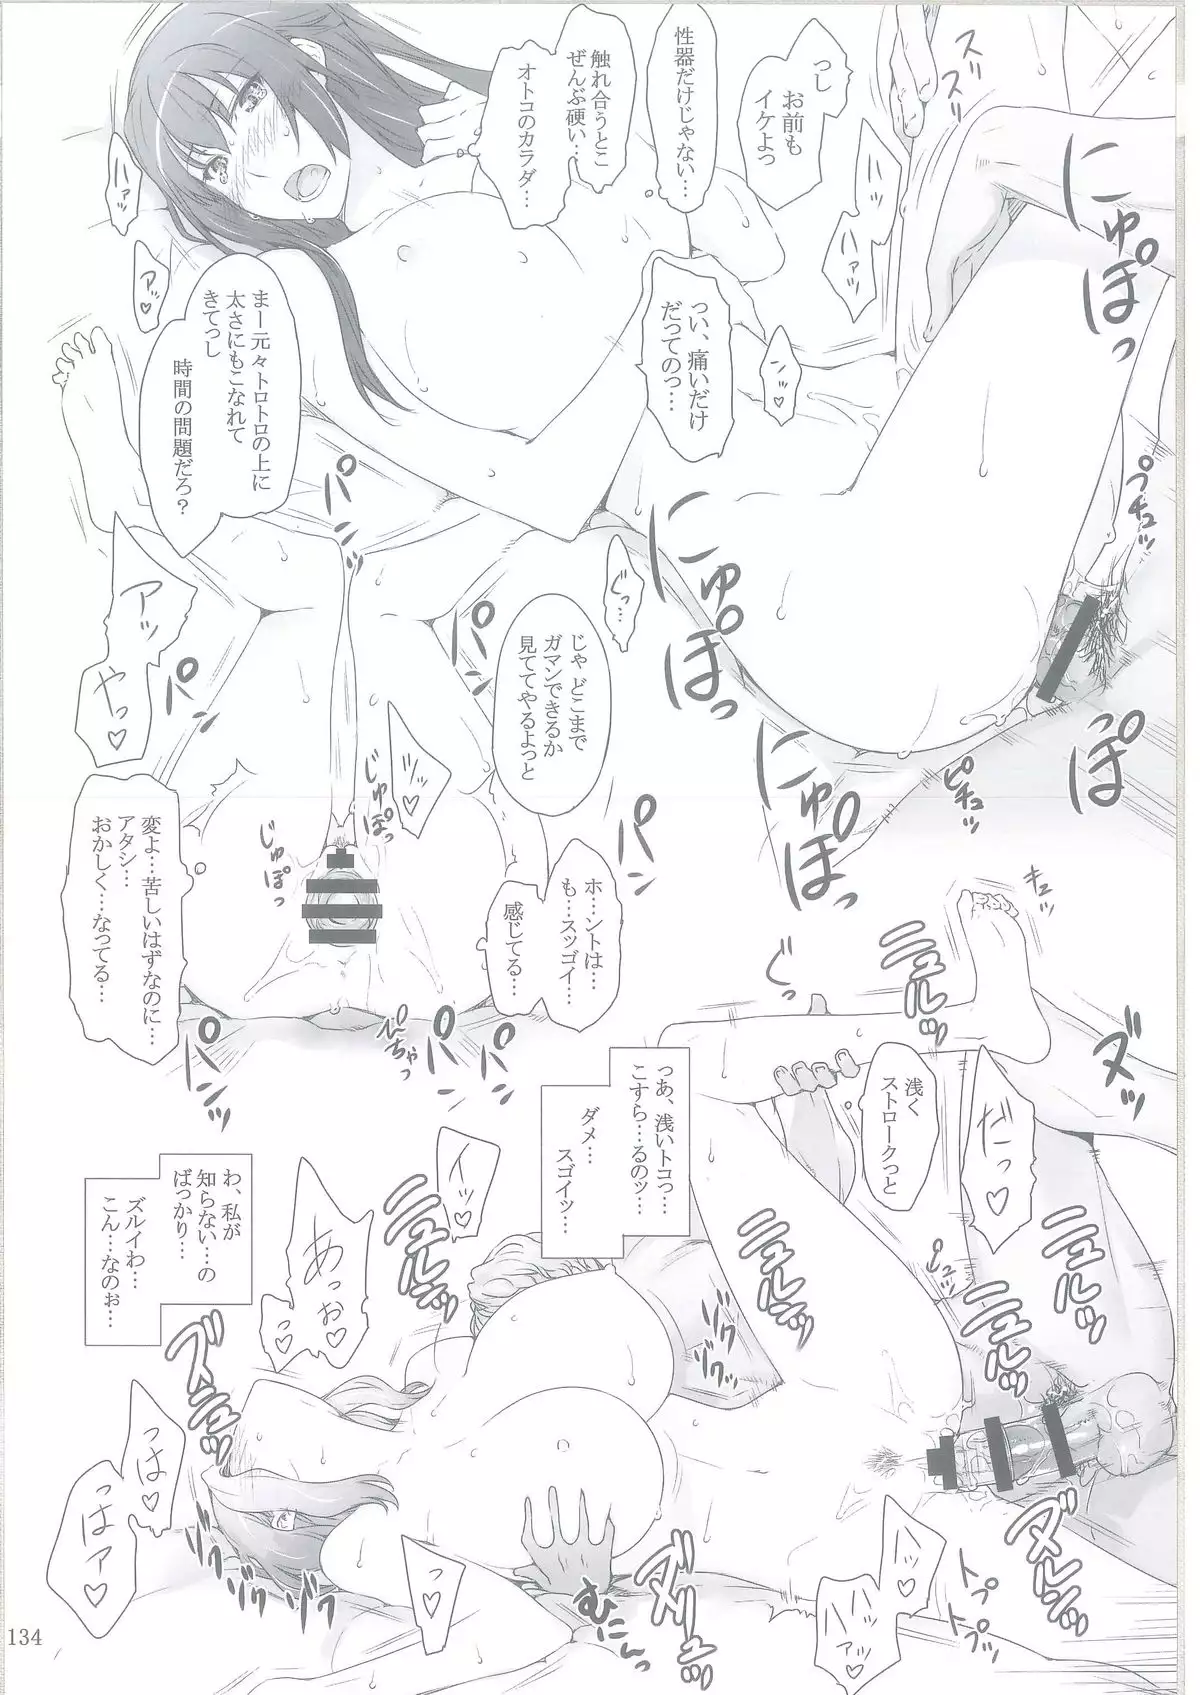 っし
お前も
イケよっ
性器だけじゃない…
触れ合うとこ
ぜんぶ硬い…
オトコのカラダ…
ハァッ
ハァッ
アッ♡
ズッ
ズッ
にゅぽっ
まー元々トロトロの上に
太さにもこなれて
きてっし
時間の問題だろ？
っつい、痛いだけ
だってのっ…
ンッ♡
プチュッ
にゅぽっ
ぐっ…
じゃ どこまで
ガマンできるか
見ててやるよっと
パンッ
パンッ
パンッ
アッ
やっ♡
ッ♡
じゅぽっ
じゅぽっ
にゅぽっ
っぽっ
ピチュッ
パンッ
ホ…ントは…
も…スッゴイ…
感じてる…
変よ…苦しいはずなのに…
アタシ…
おかしく…なってる…
パンッ
パンッ
パンッ
ぺんちゃっ
キュッ
ぐっ
ニュルッ
ズヌッ
浅く
ストロークっと
だっ♡
っあ、浅いトコっ…
こすら…るのッ…
ダメ…
スゴイッ…
イッ♡
わ、私が
知らない…の
ばっかり…
ズルイわ…
こん…なのぉ…
あっぉ♡
っ♡
ニュルッ
ニュルッ
ニュルッ
ニュルッ
ピュッ
ゾクゾクッ
ズニュッ
っは♡
っはァ♡
ゾクゾクッ
っ♡
むにんっ
ダヌッ
ハッ
ハァッ♡
トプッ
トプッ
ズヌッ
ヌルッ
134